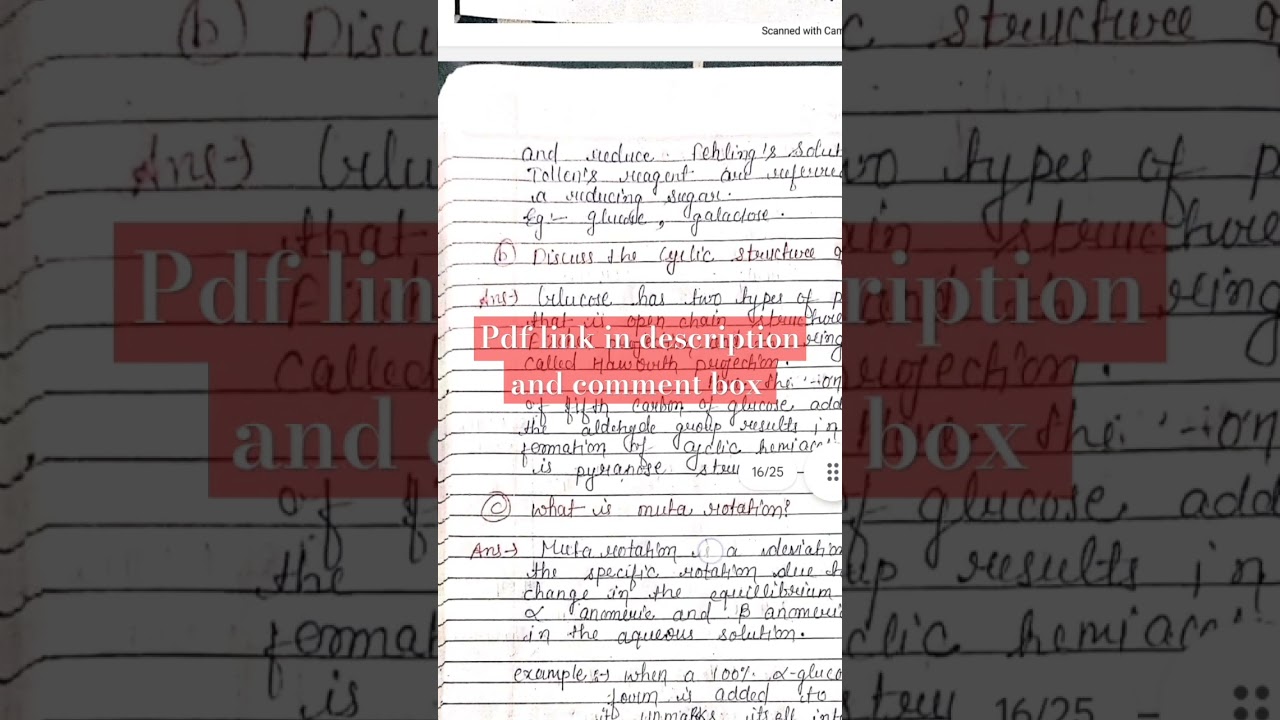 Scanned with Cam
and reduce Fehling's solut
Tollen's reagent are referre
a reducing sugar.
Eg:- glucose, galactose.
(b) Discuss the Cyclic structure
Ans→ Glucose has two types of p
that is open chain structure
ring
called Haworth projection.
the -ion
of fifth carbon of glucose add
the aldehyde group results in
formation of cyclic hemiac
is pyranose stru
16/25
(c) What is muta rotation?
Ans→ Muta rotation is a deviation
the specific rotation due t
change in the equillibrium
α anomeric and β anomeric
in the aqueous solution.
example:→ when a 100% α-gluco
form is added to
Pdf link in description
and comment box